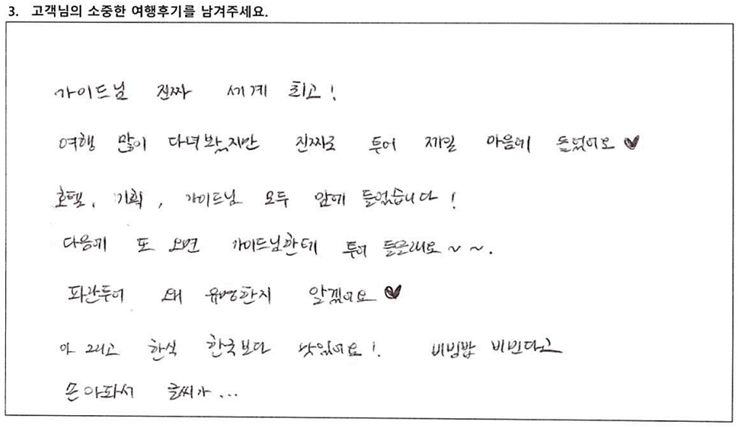 3. 고객님의 소중한 여행후기를 남겨주세요.
가이드님 진짜 세계 최고!
여행 많이 다녀봤지만 진짜로 투어 제일 마음에 들었어요 ♥
호텔, 기획, 가이드님 모두 맘에 들었습니다!
다음에 또 오면 가이드님한테 투어 들을래요~~.
파란투어 왜 유명한지 알겠어요 ♥
아 그리고 한식 한국보다 맛있어요! 비빔밥 비빈다고
손아파서 글씨가...